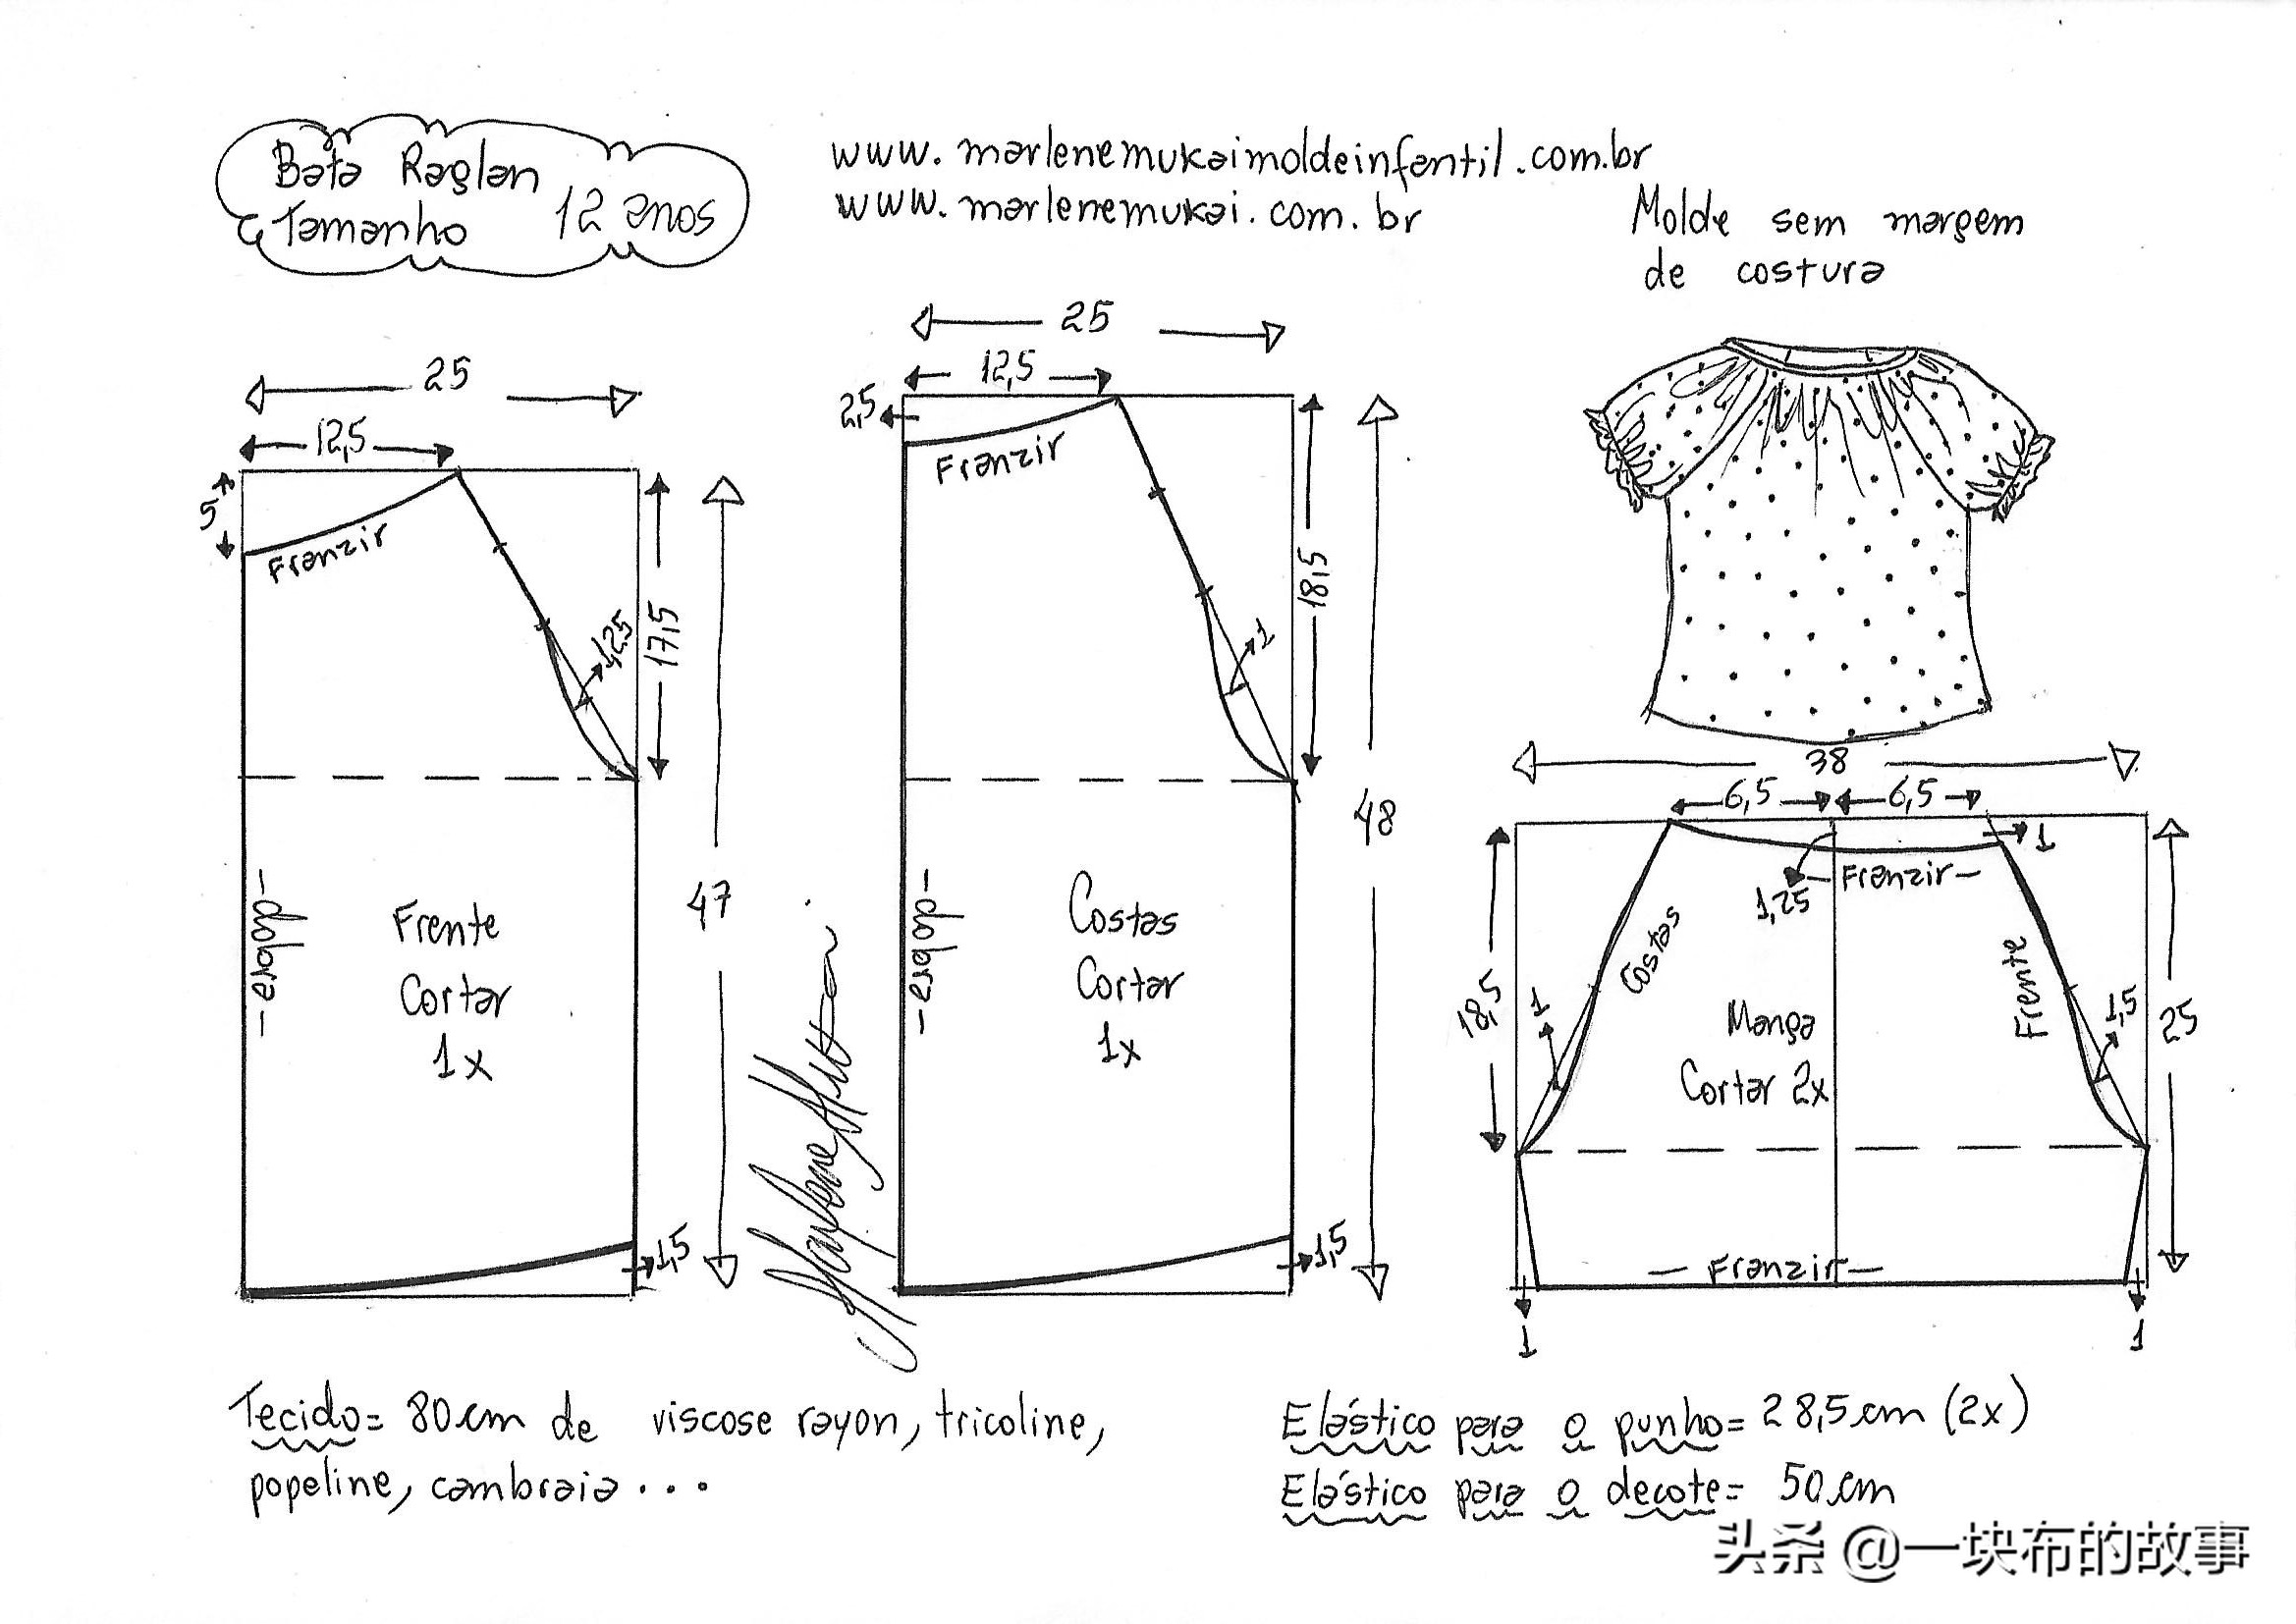 Bata Raglan
Tamanho 12 anos
www.marlenemukaimoldeinfantil.com.br
www.marlenemukai.com.br
Molde sem margem
de costura
25
12,5
5
Franzir
1,25
17,5
47
-dobra-
Frente
Cortar
1x
1,5
25
12,5
2,5
Franzir
1
18,5
48
-dobra-
Costas
Cortar
1x
1,5
38
6,5
6,5
1
1,25
Franzir-
18,5
Costas
Frente
1
1,5
25
Manga
Cortar 2x
- Franzir -
1
1
Tecido= 80cm de viscose rayon, tricoline,
popeline, cambraia...
Elástico para o punho= 28,5cm (2x)
Elástico para o decote= 50cm
头条 @一块布的故事